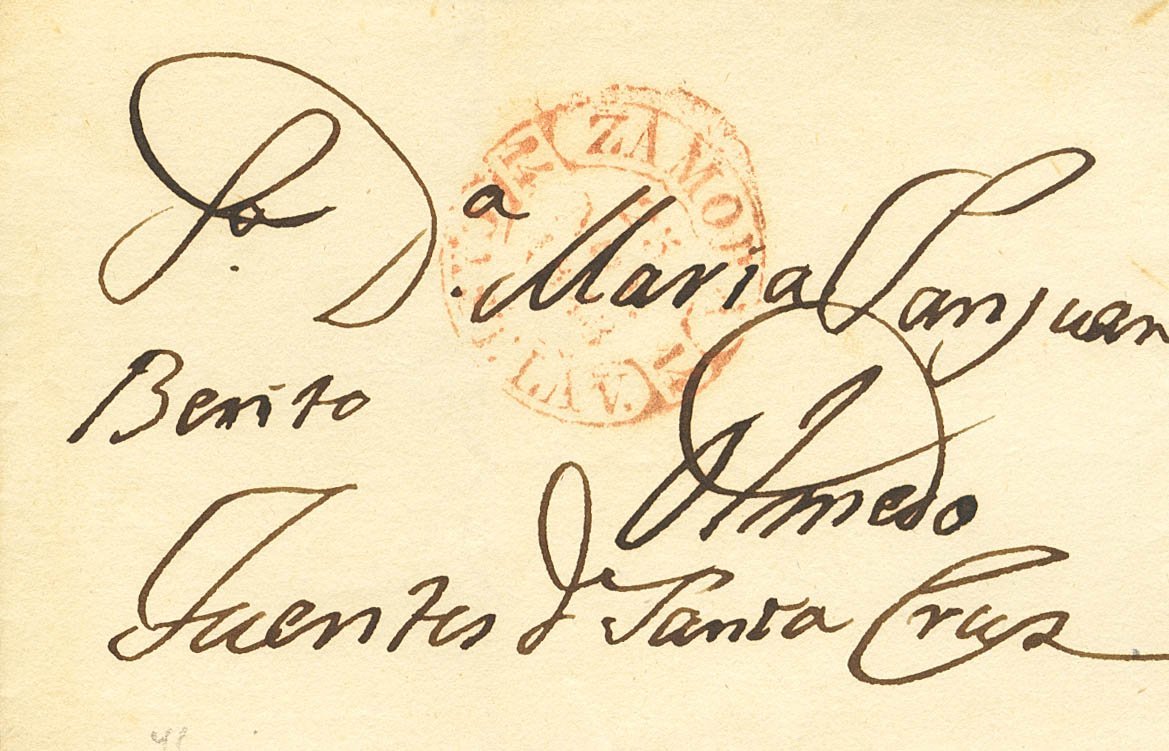 Sa. D.a Maria Sanjuan
Benito
Olmedo
Fuentes de Santa Cruz
ZAMORA